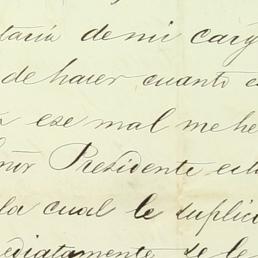 taría de mi carg
de hacer cuanto es
ese mal me he
ñor Presidente est
la cual le suplic
ediatamente se le